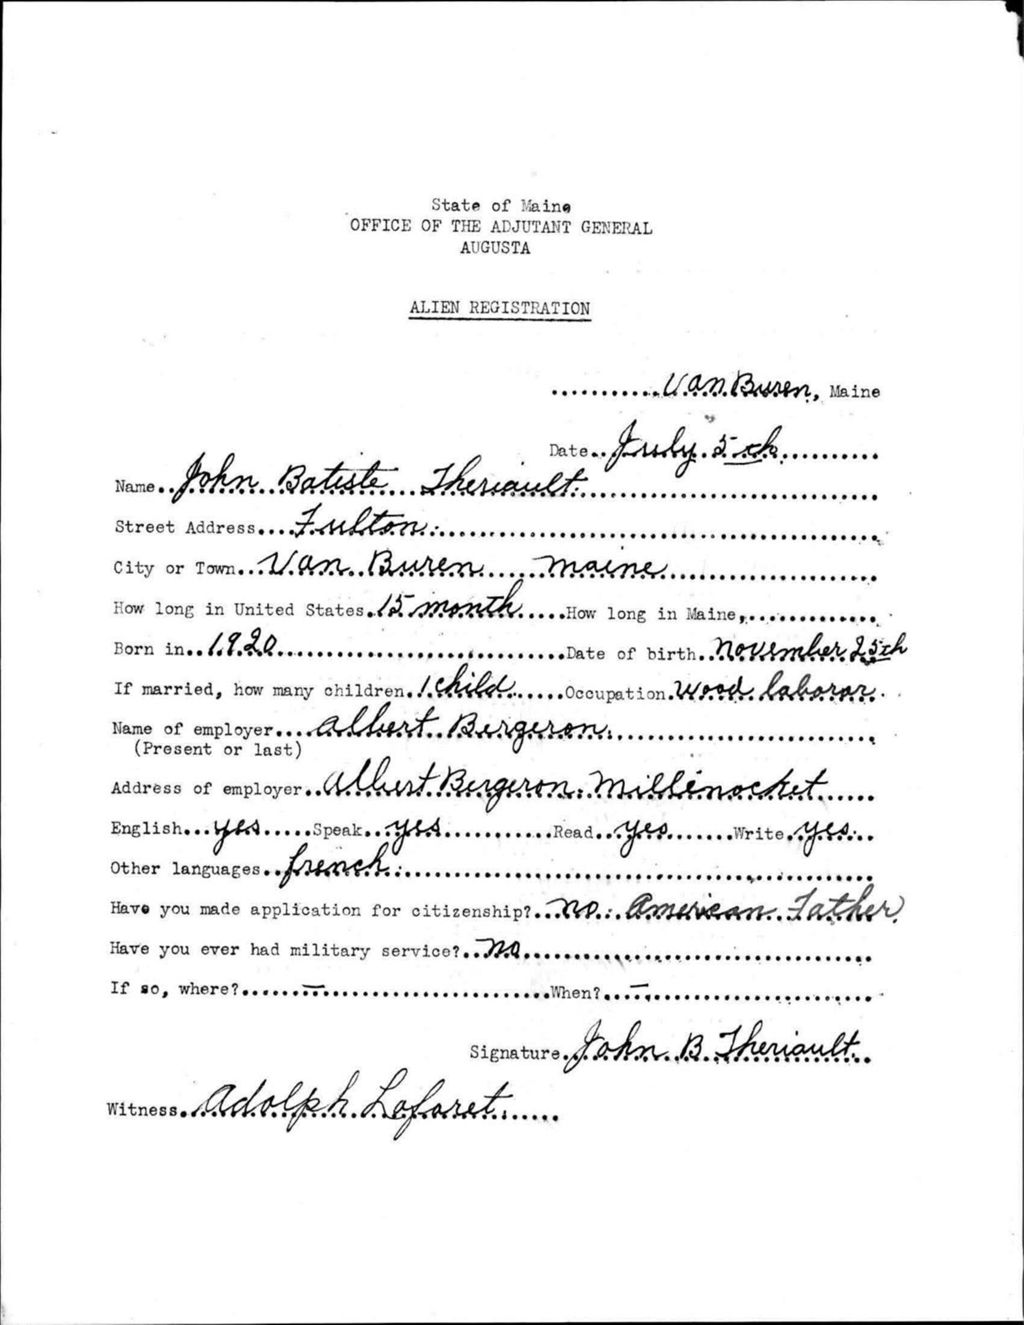 State of Maine
OFFICE OF THE ADJUTANT GENERAL
AUGUSTA
ALIEN REGISTRATION
Van Buren, Maine
Date July 5th
Name John Batiste Theriault
Street Address Fulton
City or Town Van Buren Maine
How long in United States 15 month How long in Maine
Born in 1920 Date of birth November 25th
If married, how many children 1 child Occupation Wood laborar
Name of employer Albert Bergeron
(Present or last)
Address of employer Albert Bergeron Millenocket
English yes Speak yes Read yes Write yes
Other languages french
Have you made application for citizenship? no. American Father
Have you ever had military service? No
If so, where? — When? —
Signature John B. Theriault
Witness Adolph Laforet